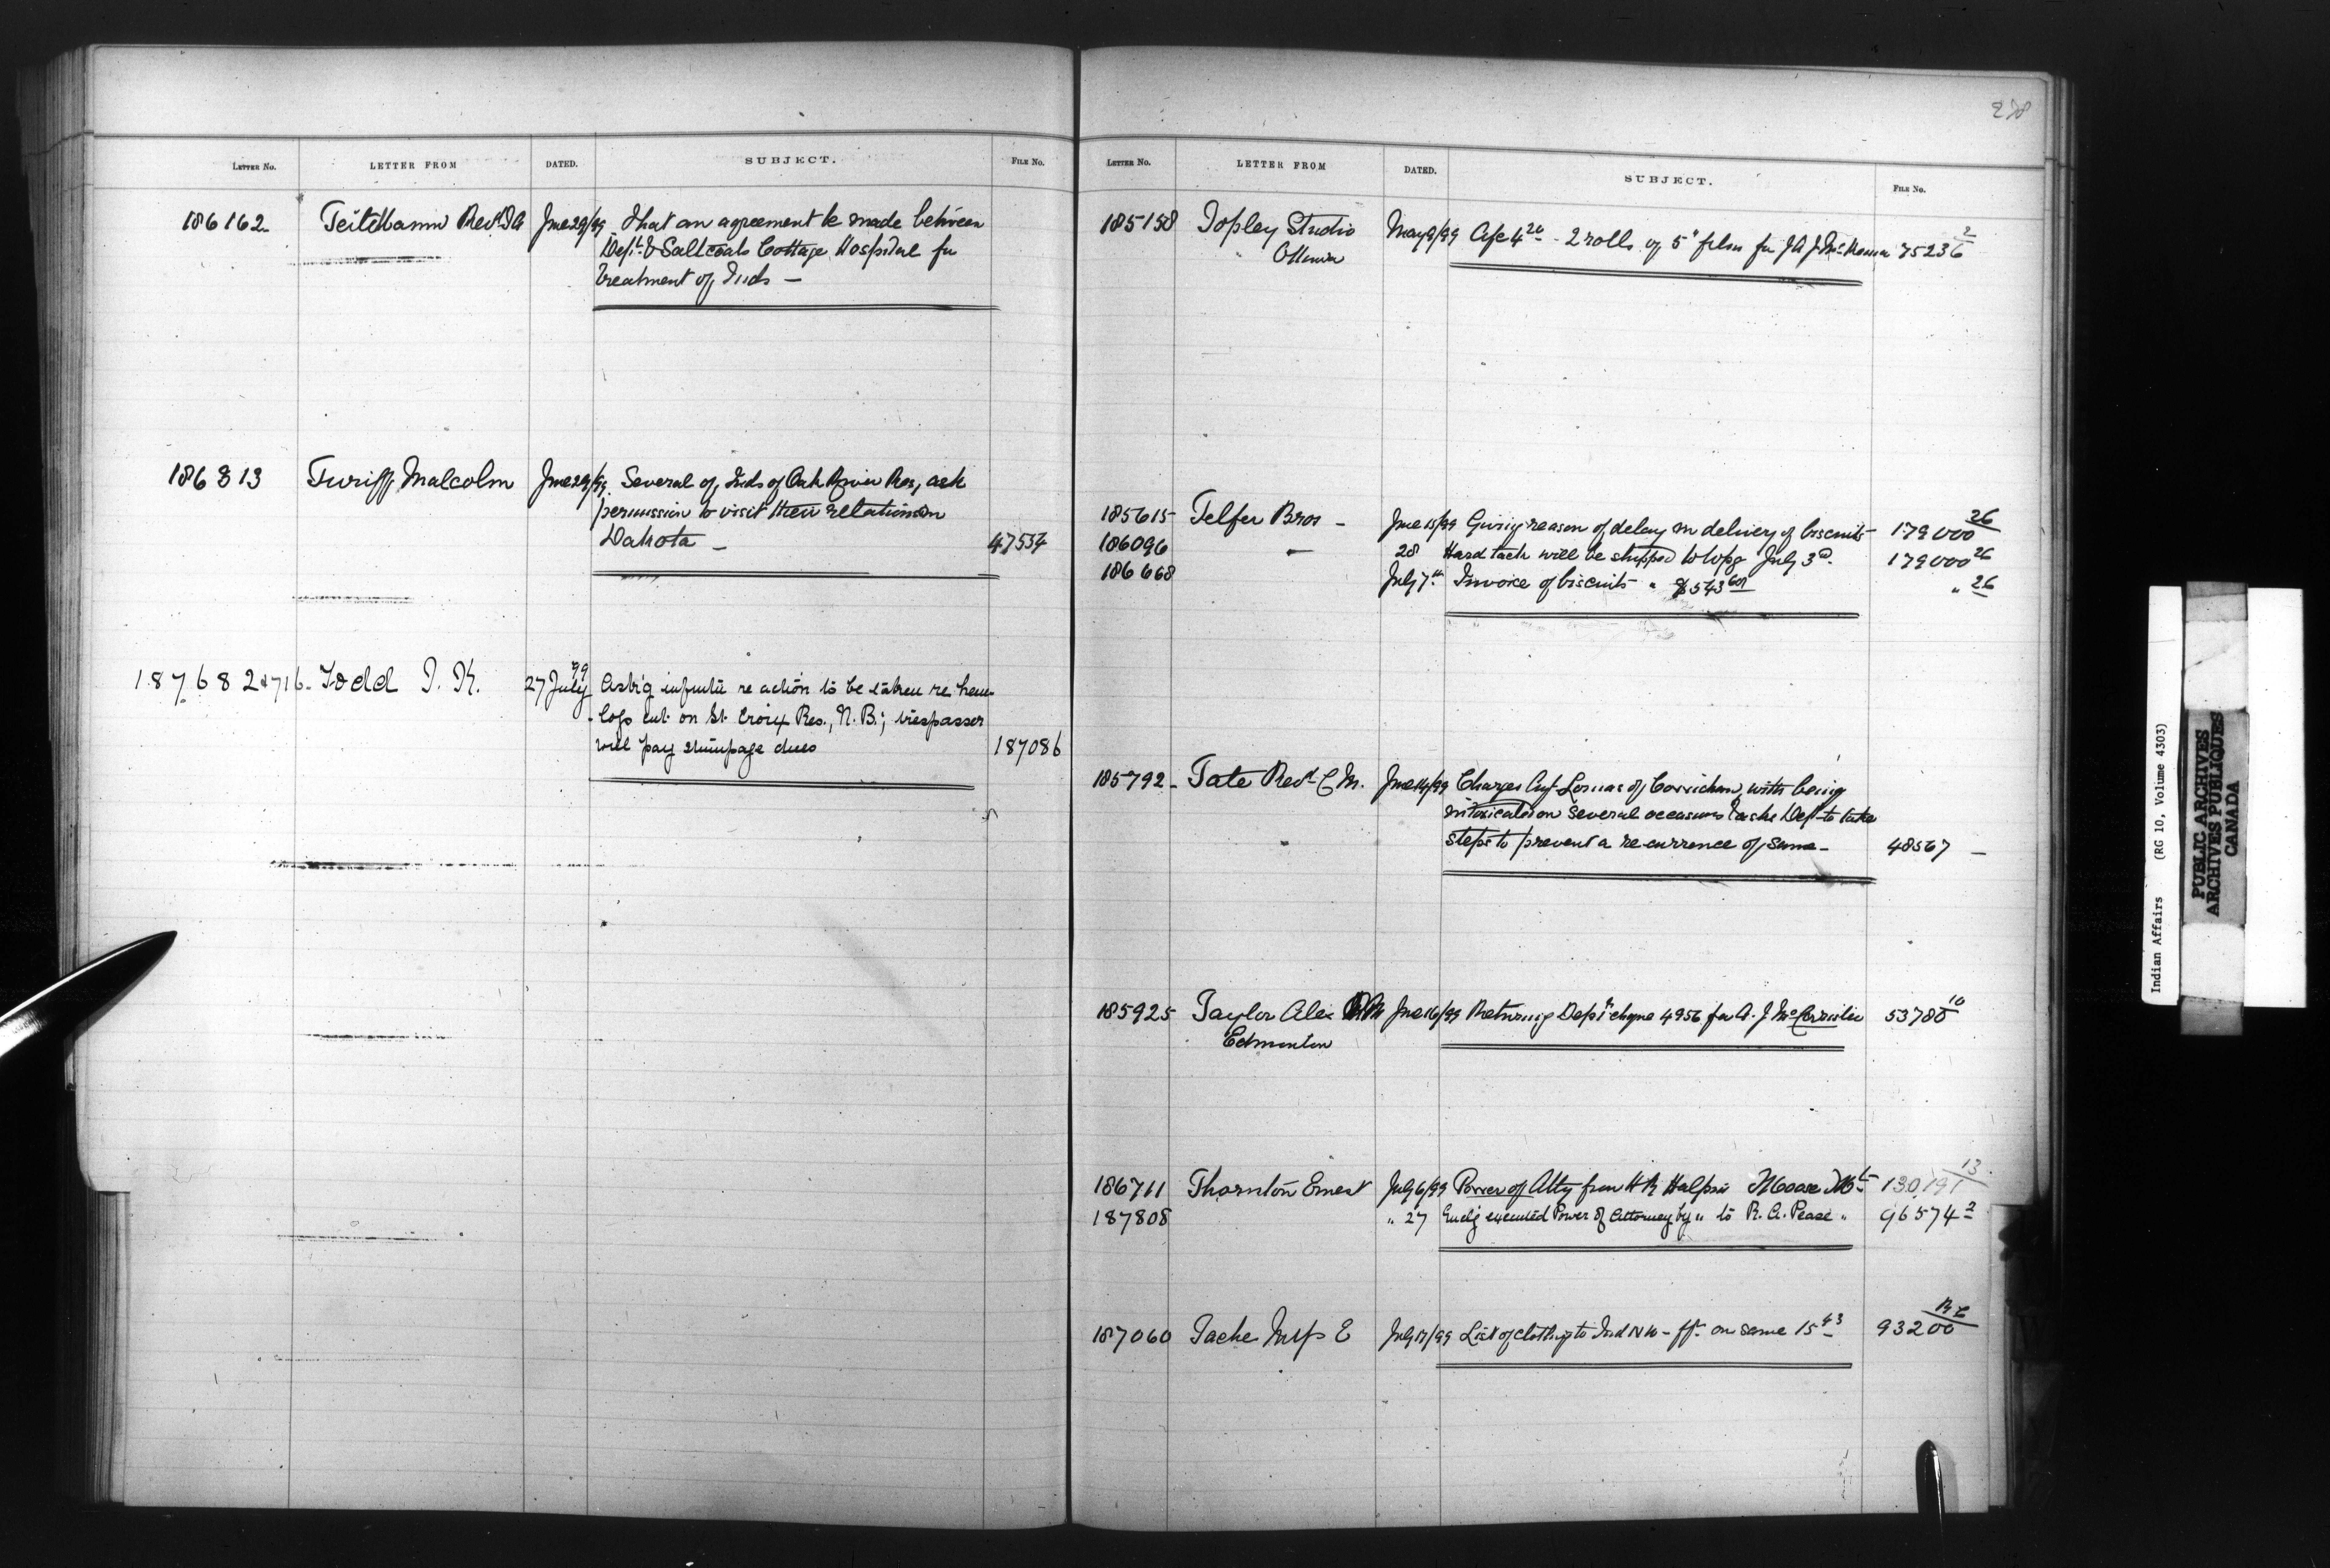 LETTER NO. LETTER FROM DATED. SUBJECT. FILE NO.
186162 Revd June 29/99 That an agreement be made between
Dept. & Saltcoats Cottage Hospital for
treatment of Inds —
186813 Turiff, Malcolm June 29/99. Several of Inds of Oak River Res, ask
permission to visit their relations in
Dakota — 47534
187682 & 716 - Todd J. K. 27 July 99 Askg re action to be taken re
logs cut on St. Croix Res., N.B.; trespasser
will pay stumpage dues 187086
278
LETTER NO. LETTER FROM DATED. SUBJECT. FILE NO.
185158 Topley Studio May 9/99 A/c 4 20 - 2 rolls of 5" film for J A J McKenna 75236 2
Ottawa
185615 Telfer Bros - June 15/99 Giving reason of delay in delivery of biscuits 179000 26
186096 — 28 Hard tack will be shipped to Wpg July 3d. 179000 26
186668 July 7th Invoice of biscuits " $543 60 " 26
185792 - Tate Revd C M. June 14/99 Charges Agt Lomas of Cowichan, with being
intoxicated on several occasions & asks Dept to take
steps to prevent a re-currence of same - 48567 —
185925 Taylor Alex June 16/99 Returning Dept's cheque 4956 for A. J. 53788 10
Edmonton
186711 Thornton Ernest July 6/99 Power of Atty from H R Halpin Moose Mt 130191 13
187808 " 27 Enclg executed Power of Attorney by " to R. A. Pease " 96574 2
187060 Tache E July 17/99 List of clothing to Ind N W - frt on same 15 43 93200
Indian Affairs (RG 10, Volume 4303)
PUBLIC ARCHIVES
ARCHIVES PUBLIQUES
CANADA